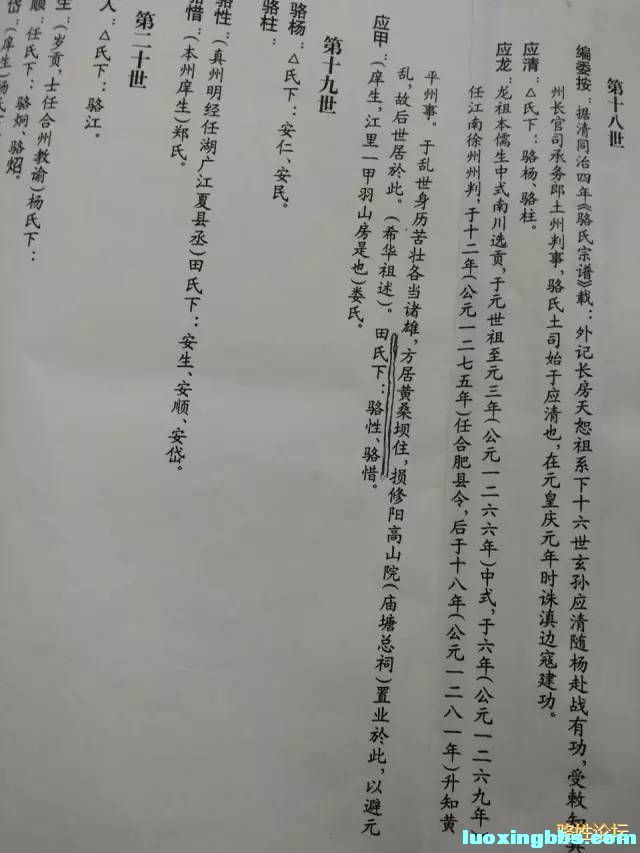 第十八世
编委按：据清同治四年《骆氏宗谱》载：外记长房天恕祖系下十六世玄孙应清随杨赴战有功，受敕知
州长官司承务郎土州判事，骆氏土司始于应清也，在元皇庆元年时诛滇边寇建功。
应清：△氏下：骆杨、骆柱。
应龙：龙祖本儒生中式南川选贡，于元世祖至元三年（公元一二六六年）中式，于六年（公元一二六九年）
任江南徐州州判，于十二年（公元一二七五年）任合肥县令，后于十八年（公元一二八一年）升知黄
平州事。于乱世身历苦壮各当诸雄，方居黄桑坝住，损修阳高山院（庙塘总祠）置业於此，以避元
乱，故后世居於此。（希华祖述）。田氏下：骆性、骆惜。
应甲：（庠生，江里一甲羽山房是也）娄氏。
第十九世
骆杨：△氏下：安仁、安民。
骆柱：
骆性：（真州明经任湖广江夏县丞）田氏下：安生、安顺、安岱。
惜：（本州庠生）郑氏。
第二十世
人：△氏下：骆江。
生：（岁贡，士任合州教谕）杨氏下：
顺：任氏下：骆炯、骆炤。
岱：（庠生）杨氏
骆姓论坛
luoxingbbs.com